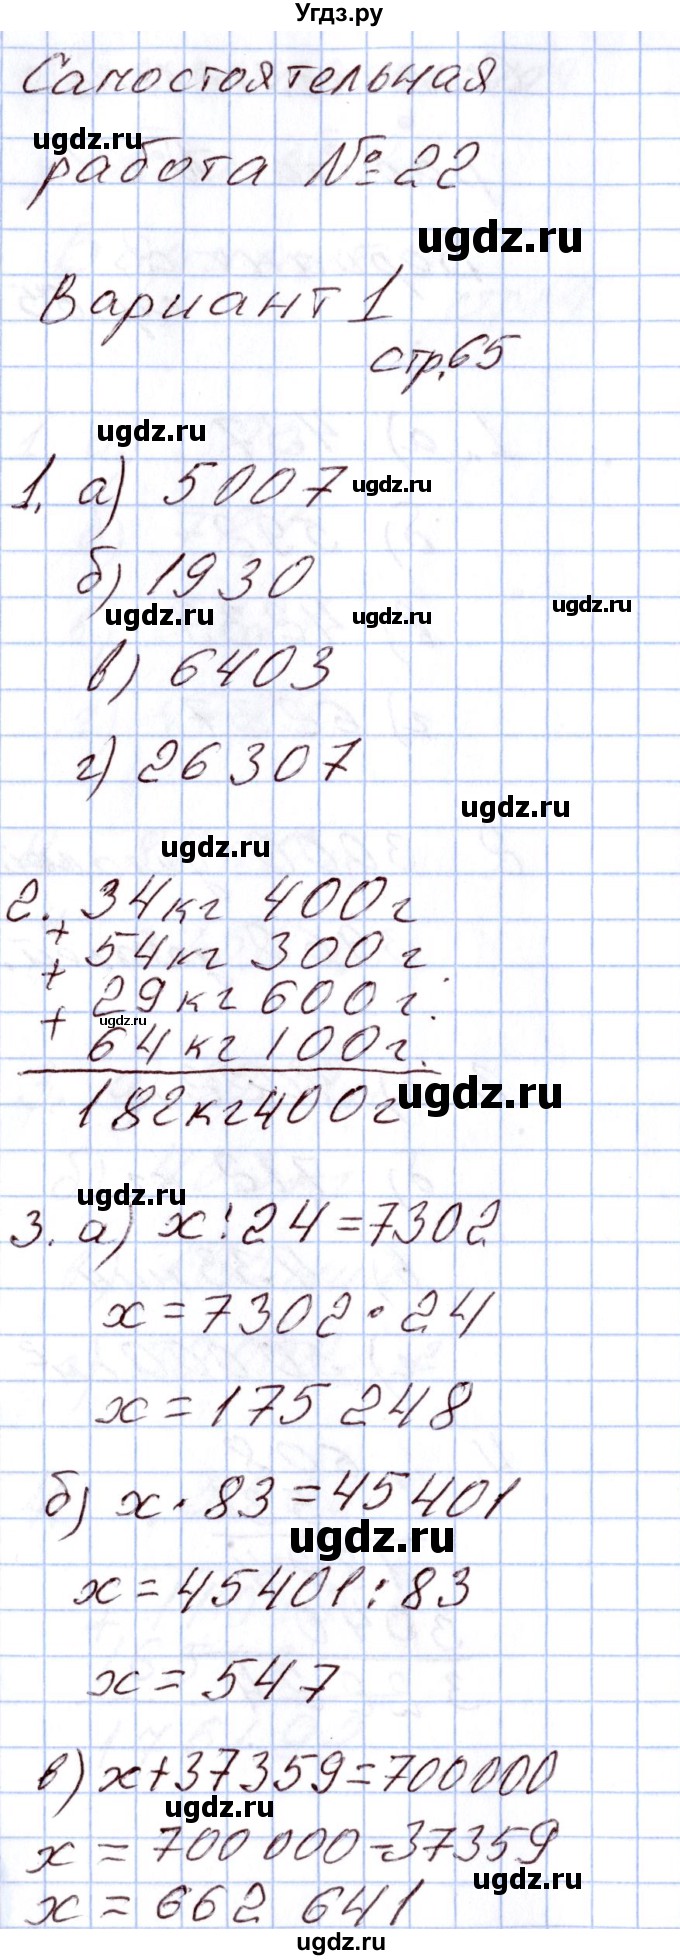 Угдз.ру
Самостоятельная
ugdz.ru
работа № 22
ugdz.ru
Вариант 1
стр. 65
ugdz.ru
1. а) 5007 ugdz.ru
б) 1930
ugdz.ru ugdz.ru ugdz.ru
в) 6403
г) 26307
ugdz.ru
ugdz.ru
2. 34кг 400г
+ 54кг 300г
+ 29кг 600г
ugdz.ru
+ 64кг 100г.
182кг400г
ugdz.ru
ugdz.ru
3. а) x:24=7302
x=7302·24
x=175 248
б) x·83=45401
ugdz.ru
x=45401:83
x=547
в) x+37359=700000
ugdz.ru
x=700 000-37359
ugdz.ru
x=662 641
ugdz.ru